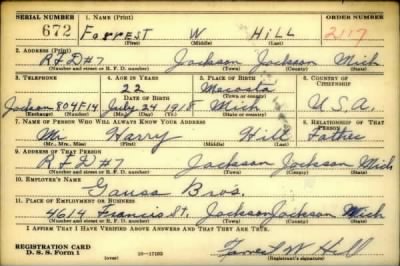 SERIAL NUMBER 1. NAME (Print) ORDER NUMBER
672 FORREST W HILL 2117
(First) (Middle) (Last)
2. ADDRESS (Print)
RFD#7 Jackson Jackson Mich
(Number and street or R. F. D. number) (Town) (County) (State)
3. TELEPHONE 4. AGE IN YEARS 5. PLACE OF BIRTH 6. COUNTRY OF CITIZENSHIP
22 Mecosta
DATE OF BIRTH (Town or county)
Jackson 804F14 July 24 1918 Mich U.S.A.
(Exchange) (Number) (Mo.) (Day) (Yr.) (State or country)
7. NAME OF PERSON WHO WILL ALWAYS KNOW YOUR ADDRESS 8. RELATIONSHIP OF THAT PERSON
Mr Harry Hill Father
(Mr., Mrs., Miss) (First) (Middle) (Last)
9. ADDRESS OF THAT PERSON
RFD#7 Jackson Jackson Mich
(Number and street or R. F. D. number) (Town) (County) (State)
10. EMPLOYER'S NAME
Gauss Bro's.
11. PLACE OF EMPLOYMENT OR BUSINESS
4614 Francis St. Jackson Jackson Mich
(Number and street or R. F. D. number) (Town) (County) (State)
I AFFIRM THAT I HAVE VERIFIED ABOVE ANSWERS AND THAT THEY ARE TRUE.
REGISTRATION CARD
D. S. S. Form 1 (over) 16—17105 Forrest W Hill
(Registrant's signature)